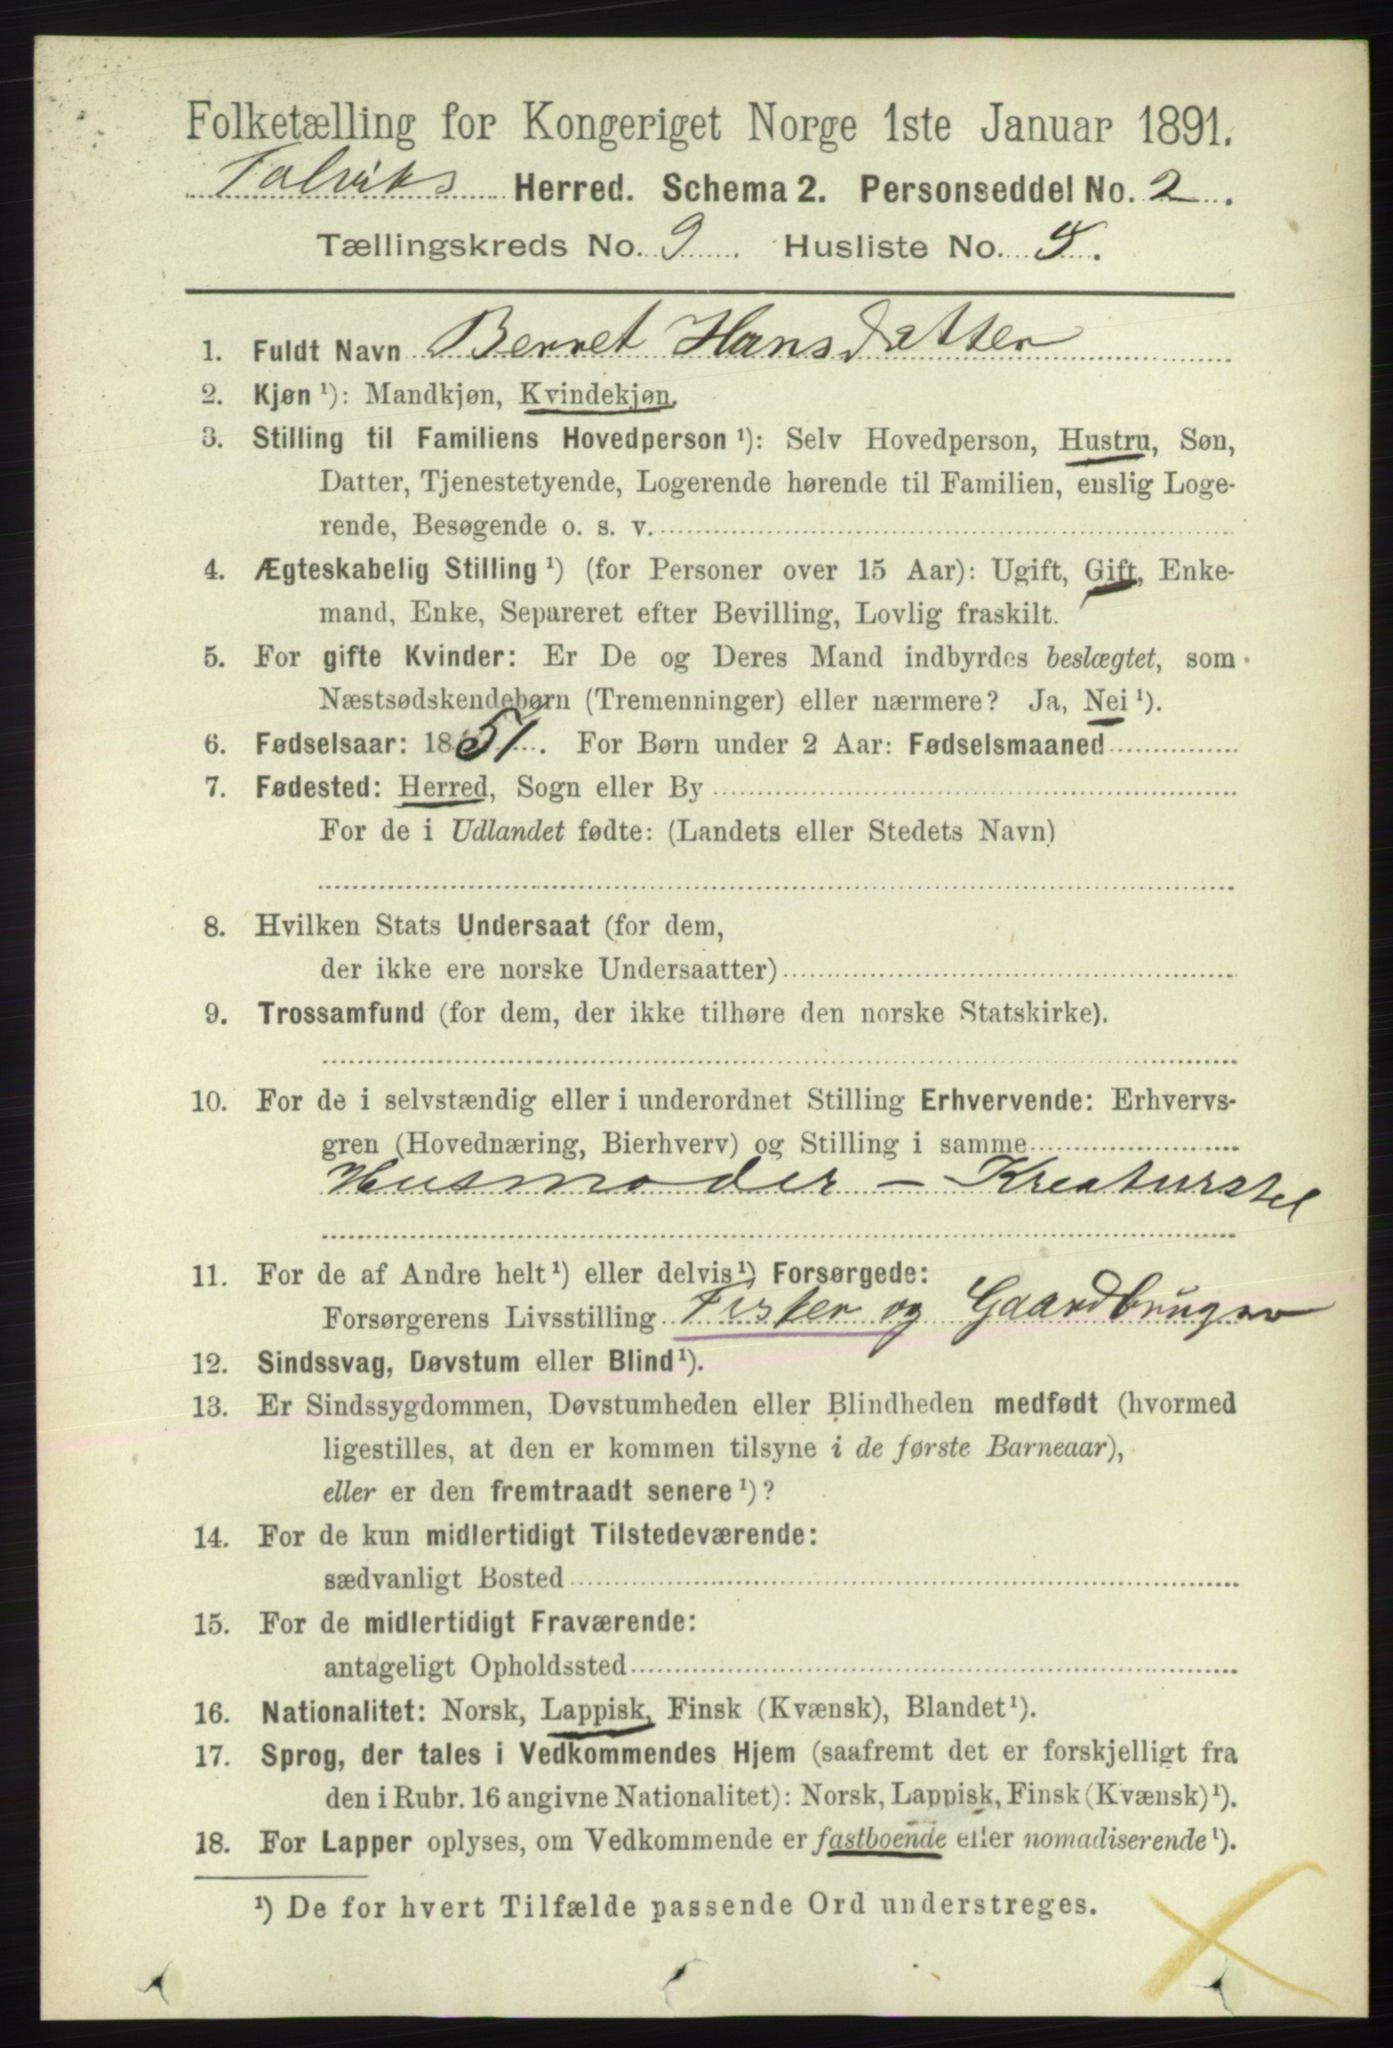 Folketælling for Kongeriget Norge 1ste Januar 1891.
Talviks Herred. Schema 2. Personseddel No. 2.
Tællingskreds No. 9 Husliste No. 5.
1. Fuldt Navn Berret Hansdatter
2. Kjøn ¹): Mandkjøn, Kvindekjøn.
3. Stilling til Familiens Hovedperson ¹): Selv Hovedperson, Hustru, Søn,
Datter, Tjenestetyende, Logerende hørende til Familien, enslig Loge-
rende, Besøgende o. s. v.
4. Ægteskabelig Stilling ¹) (for Personer over 15 Aar): Ugift, Gift, Enke-
mand, Enke, Separeret efter Bevilling, Lovlig fraskilt.
5. For gifte Kvinder: Er De og Deres Mand indbyrdes beslægtet, som
Næstsødskendebørn (Tremenninger) eller nærmere? Ja, Nei ¹).
6. Fødselsaar: 1851. For Børn under 2 Aar: Fødselsmaaned
7. Fødested: Herred, Sogn eller By
For de i Udlandet fødte: (Landets eller Stedets Navn)
8. Hvilken Stats Undersaat (for dem,
der ikke ere norske Undersaatter)
9. Trossamfund (for dem, der ikke tilhøre den norske Statskirke).
10. For de i selvstændig eller i underordnet Stilling Erhvervende: Erhvervs-
gren (Hovednæring, Bierhverv) og Stilling i samme
Husmoder - Kreaturstel
11. For de af Andre helt ¹) eller delvis ¹) Forsørgede:
Forsørgerens Livsstilling Fisker og Gaardbruger
12. Sindssvag, Døvstum eller Blind ¹).
13. Er Sindssygdommen, Døvstumheden eller Blindheden medfødt (hvormed
ligestilles, at den er kommen tilsyne i de første Barneaar),
eller er den fremtraadt senere ¹)?
14. For de kun midlertidigt Tilstedeværende:
sædvanligt Bosted
15. For de midlertidigt Fraværende:
antageligt Opholdssted
16. Nationalitet: Norsk, Lappisk, Finsk (Kvænsk), Blandet ¹).
17. Sprog, der tales i Vedkommendes Hjem (saafremt det er forskjelligt fra
den i Rubr. 16 angivne Nationalitet): Norsk, Lappisk, Finsk (Kvænsk) ¹).
18. For Lapper oplyses, om Vedkommende er fastboende eller nomadiserende ¹).
¹) De for hvert Tilfælde passende Ord understreges.